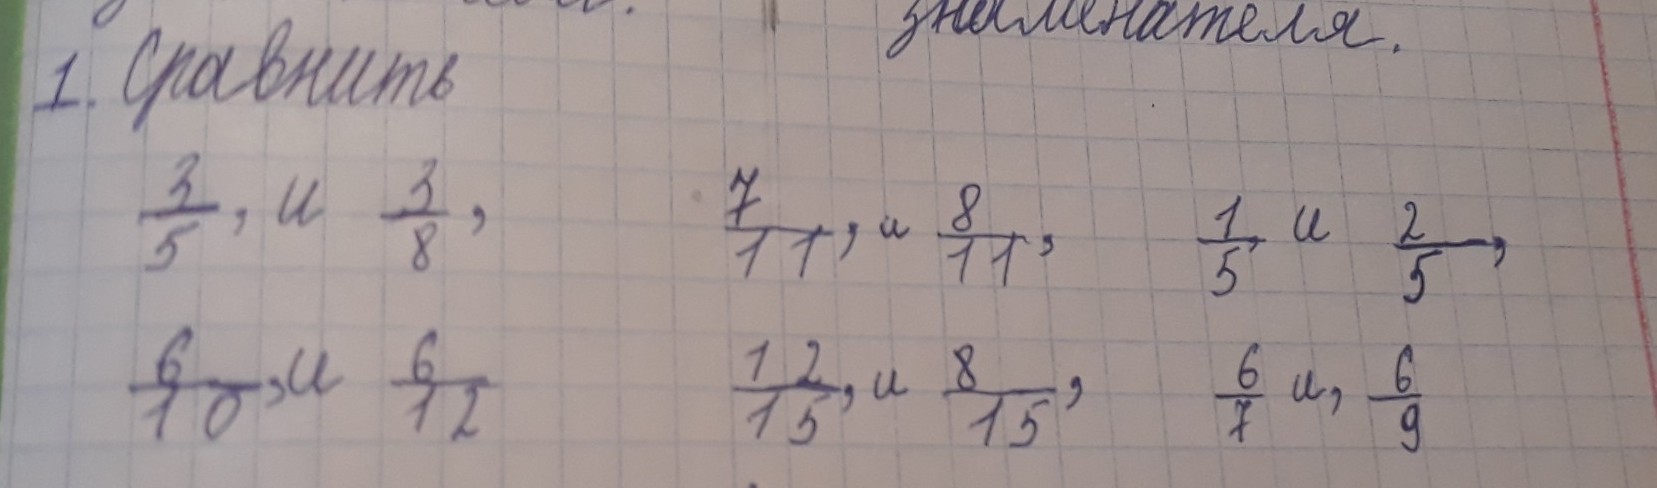 знаменателя.
1. Сравнить
3/5, и 3/8, 7/11, и 8/11, 1/5 и 2/5,
6/10, и 6/12 12/15, и 8/15, 6/7 и, 6/9